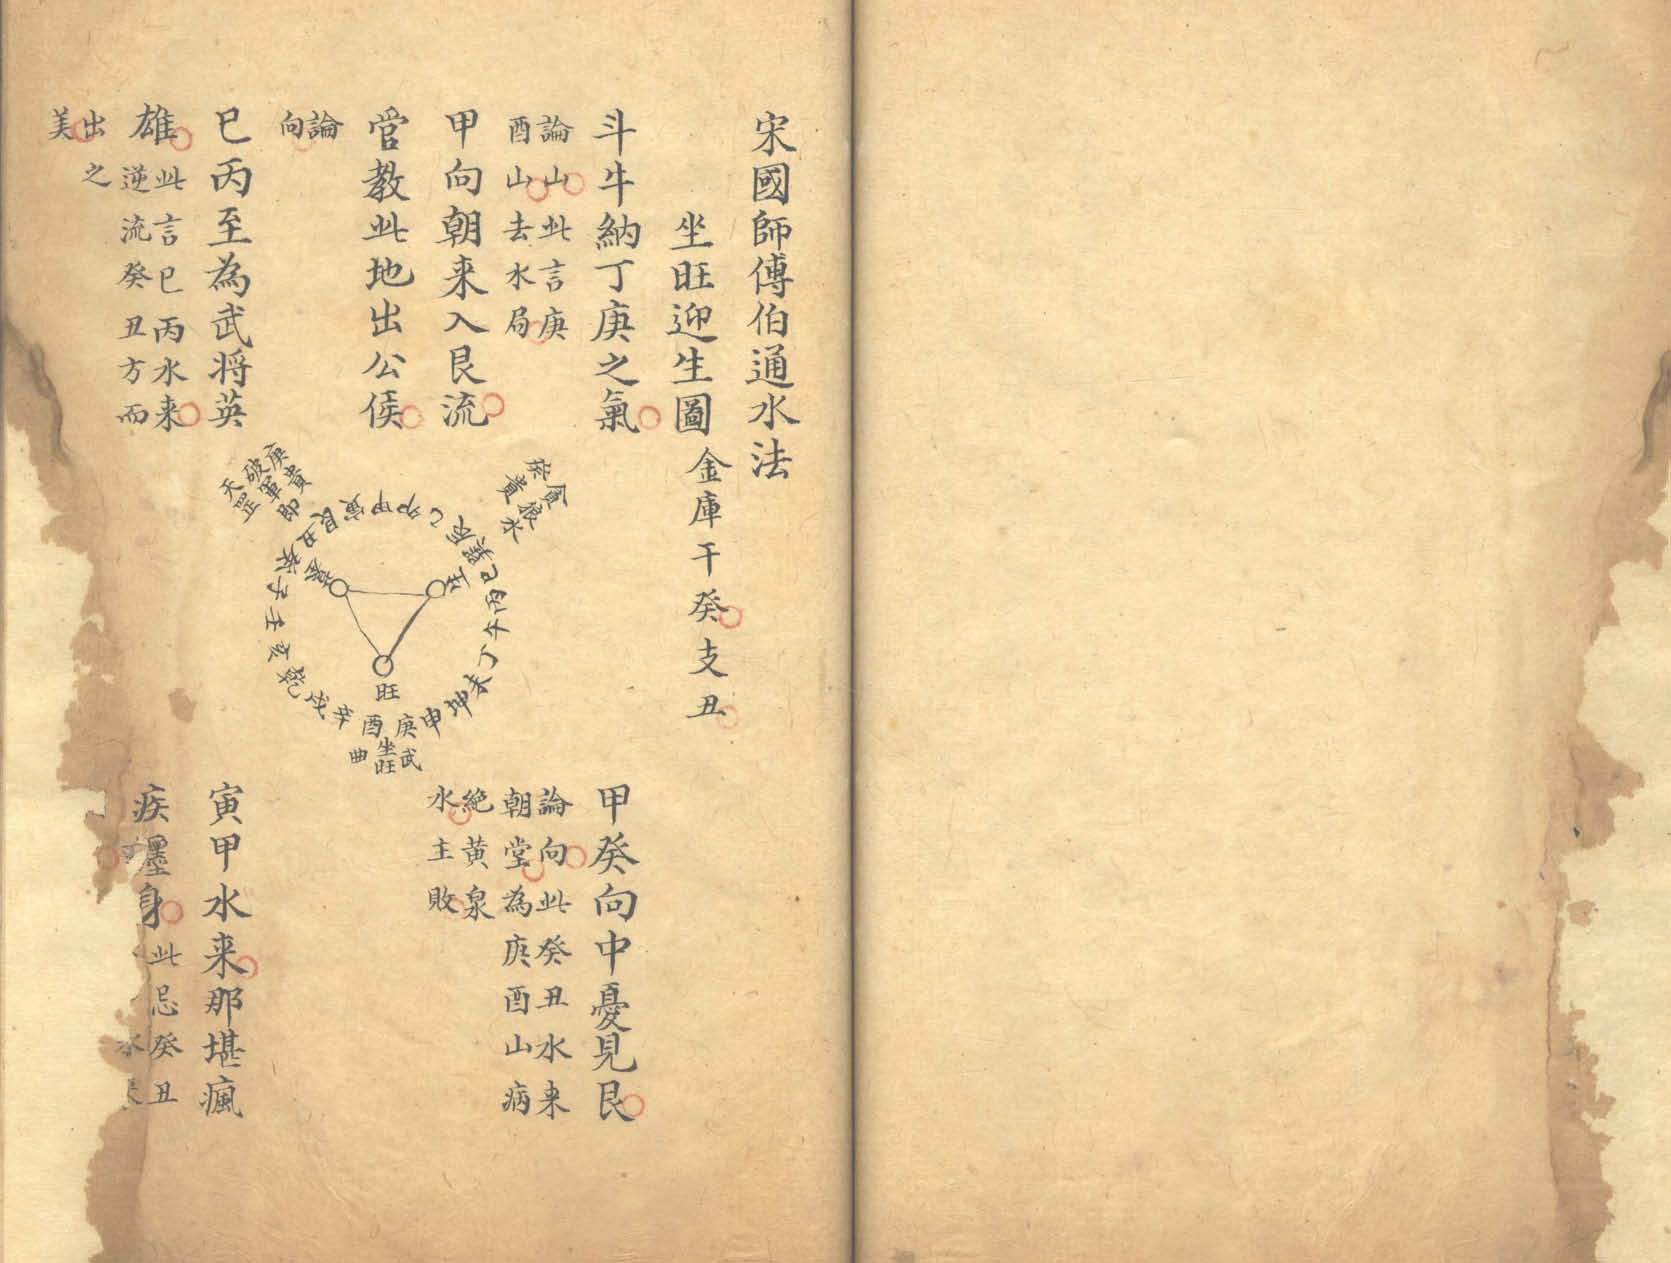 宋國師傅伯通水法
坐旺迎生圖
金庫干癸支丑
斗牛納丁庚之氣
論山此言庚
酉山去水局
甲向朝来入艮流
官教此地出公侯
論
向
巳丙至為武将英
雄
此言巳丙水来
逆流癸丑方而
出之
美
貪狼水
癸貴
庚貴即
破軍
天罡
艮寅甲卯乙
巳丙午丁未坤申庚酉辛戌乾亥壬子癸丑
生
旺
墓
武
坐旺
曲
甲癸向中憂見艮
論向此癸丑水来
朝堂為庚酉山病
絕黄泉
水主敗
寅甲水来那堪瘋
疾
身
此忌癸丑
水